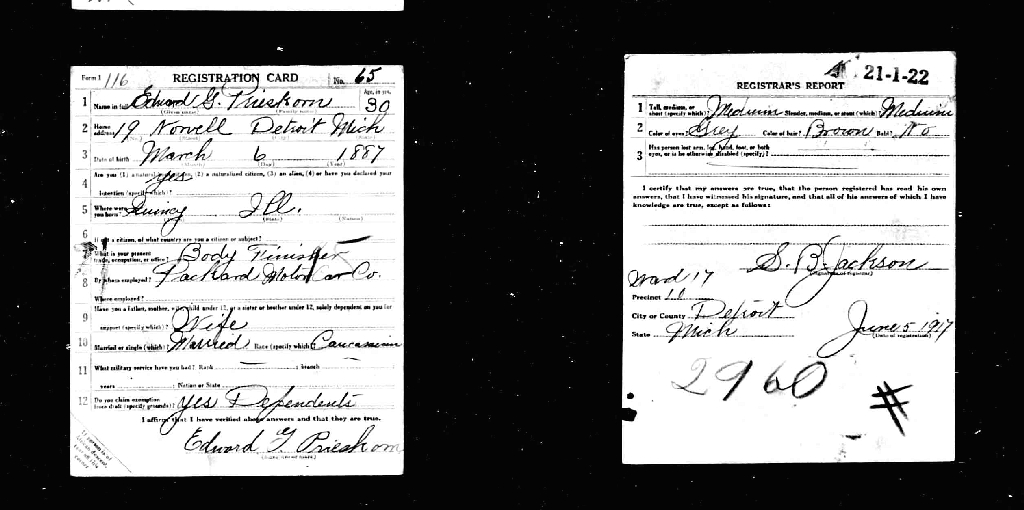 Form 1 116 REGISTRATION CARD No. 65
1 Name in full Edward G. Prieskorn Age, in yrs. 30
(Given name) (Family name)
2 Home address 19 Norvell Detroit Mich
3 Date of birth March 6 1887
(Month) (Day) (Year)
4 Are you (1) a natural-born citizen, (2) a naturalized citizen, (3) an alien, (4) or have you declared your
intention (specify which)? yes
5 Where were you born? Quincy Ill.
(Town) (State) (Nation)
6 If not a citizen, of what country are you a citizen or subject?
7 What is your present trade, occupation, or office? Body Finisher
8 By whom employed? Packard Motor Car Co.
Where employed?
9 Have you a father, mother, wife, child under 12, or a sister or brother under 12, solely dependent on you for
support (specify which)? Wife
10 Married or single (which)? Married Race (specify which)? Caucasian
11 What military service have you had? Rank ; branch
years ; Nation or State
12 Do you claim exemption from draft (specify grounds)? yes Dependents
I affirm that I have verified above answers and that they are true.
Edward G. Prieskorn
(Signature or mark)
21-1-22
REGISTRAR'S REPORT
1 Tall, medium, or short (specify which)? Medium Slender, medium, or stout (which)? Medium
2 Color of eyes? Grey Color of hair? Brown Bald? No
3 Has person lost arm, leg, hand, foot, or both
eyes, or is he otherwise disabled (specify)?
I certify that my answers are true, that the person registered has read his own
answers, that I have witnessed his signature, and that all of his answers of which I have
knowledge are true, except as follows:
S. B. Jackson
(Signature of registrar)
Ward 17
Precinct 11
City or County Detroit
State Mich June 5 1917
(Date of registration)
2960 #